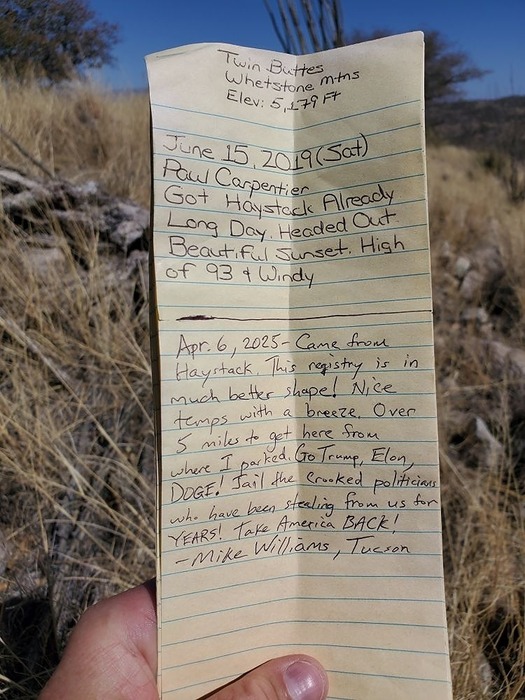 Twin Buttes
Whetstone Mtns
Elev: 5,179 FT
June 15, 2019 (Sat)
Paul Carpentier
Got Haystack Already
Long Day. Headed Out
Beautiful Sunset. High
of 93 & Windy
Apr. 6, 2025 - Came from
Haystack. This registry is in
much better shape! Nice
temps with a breeze. Over
5 miles to get here from
where I parked. Go Trump, Elon,
DOGE! Jail the crooked politicians
who have been stealing from us for
YEARS! Take America BACK!
- Mike Williams, Tucson